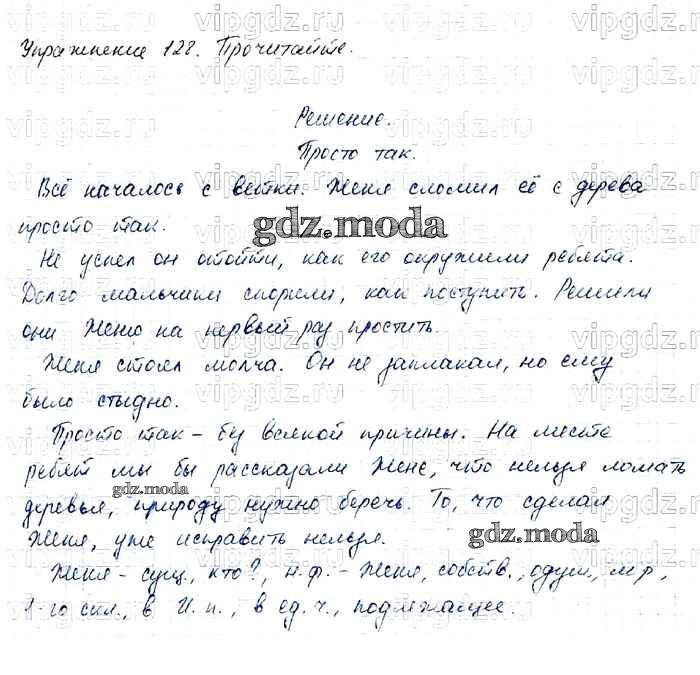 Упражнение 128. Прочитайте.
Решение.
Просто так.
Всё началось с ветки. Женя сломил её с дерева
просто так.
gdz.moda
Не успел он отойти, как его окружили ребята.
Долго мальчики спорили, как поступить. Решили
они Женю на первый раз простить.
Женя стоял молча. Он не заплакал, но ему
было стыдно.
Просто так – без всякой причины. На месте
ребят мы бы рассказали Жене, что нельзя ломать
gdz.moda
деревья, природу нужно беречь. То, что сделал
gdz.moda
Женя, уже исправить нельзя.
Женя – сущ., кто?, н.ф. – Женя, собств., одуш., м.р.,
1-го скл., в И.п., в ед.ч., подлежащее.